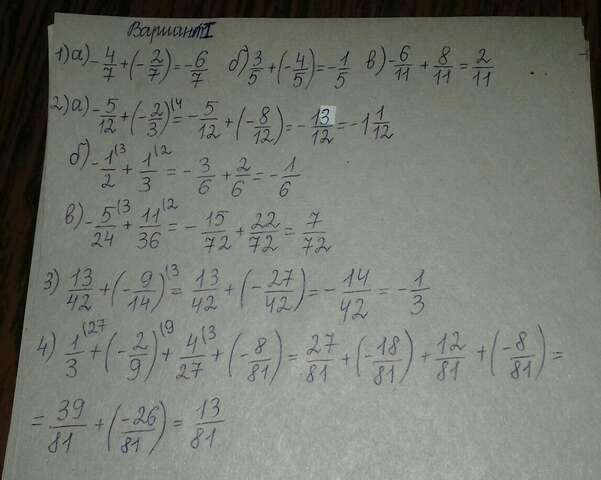 Вариант I
1) а) -4/7 + (-2/7) = -6/7 б) 3/5 + (-4/5) = -1/5 в) -6/11 + 8/11 = 2/11
2) а) -5/12 + (-2/3)(4 = -5/12 + (-8/12) = -13/12 = -1 1/12
б) -1/2(3 + 1/3(2 = -3/6 + 2/6 = -1/6
в) -5/24(3 + 11/36(2 = -15/72 + 22/72 = 7/72
3) 13/42 + (-9/14)(3 = 13/42 + (-27/42) = -14/42 = -1/3
4) 1/3(27 + (-2/9)(9 + 4/27(3 + (-8/81) = 27/81 + (-18/81) + 12/81 + (-8/81) =
= 39/81 + (-26/81) = 13/81